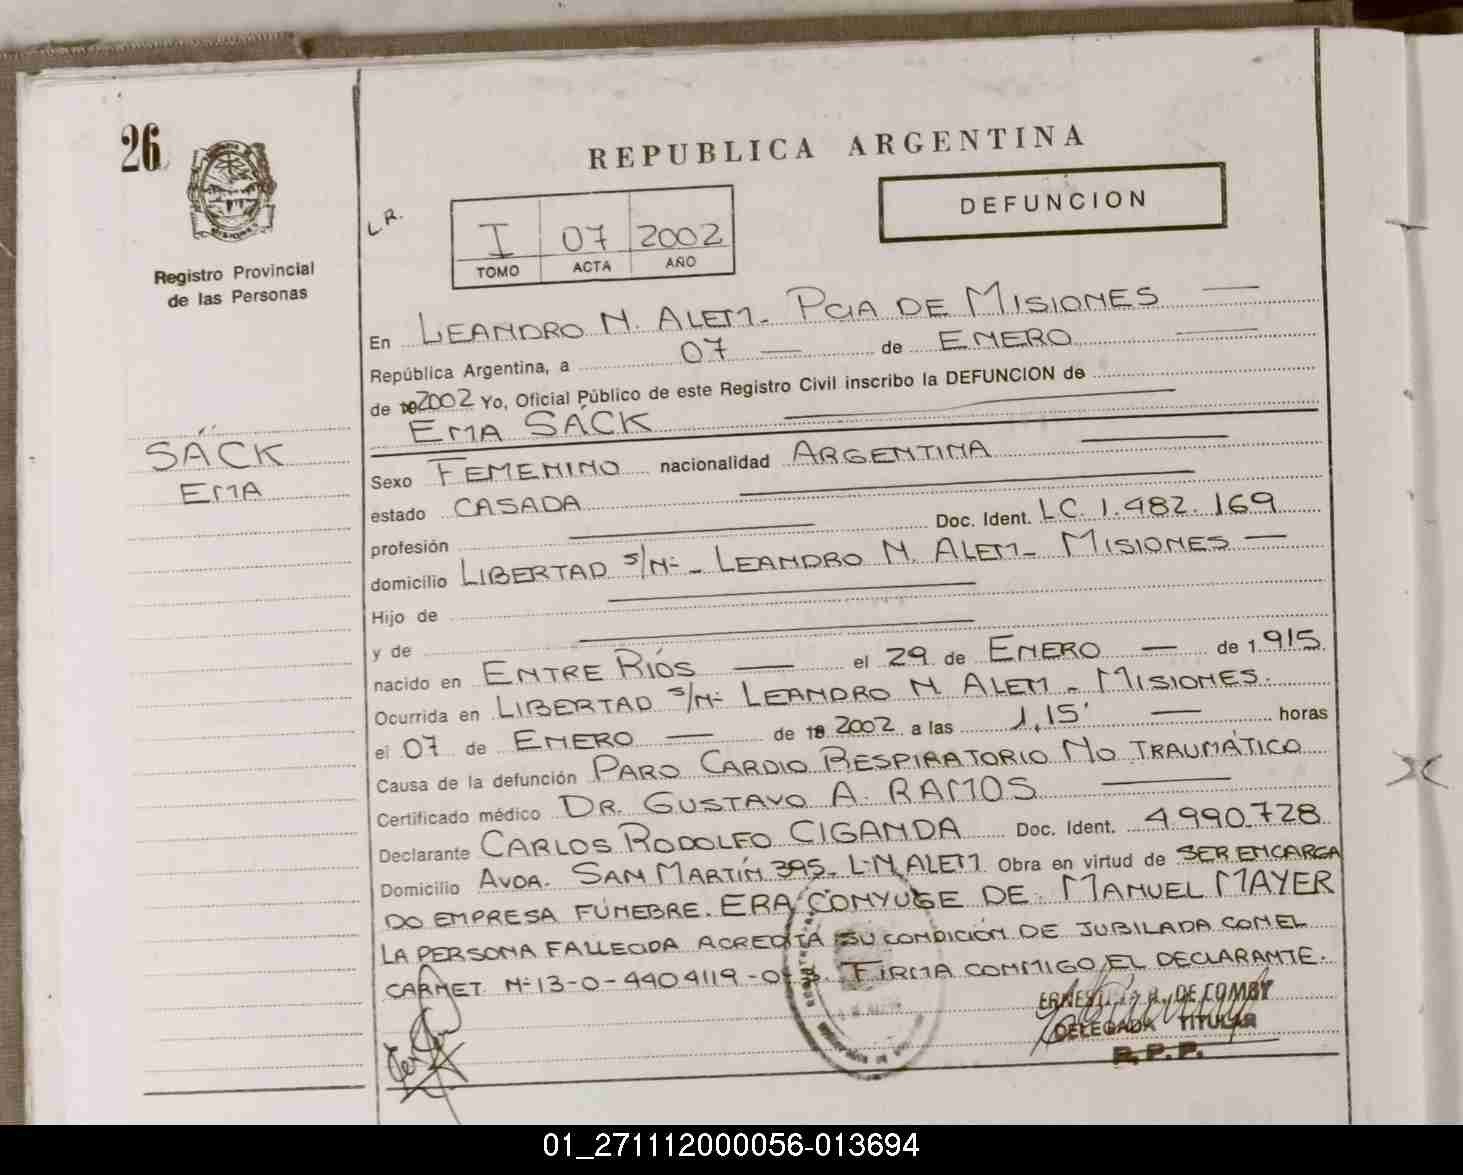 26
REPUBLICA ARGENTINA
DEFUNCION
L R.
I 07 2002
TOMO ACTA AÑO
Registro Provincial
de las Personas
SÄCK
EMA
En LEANDRO N. ALEM - PCIA DE MISIONES —
República Argentina, a 07 — de ENERO
de 2002 Yo, Oficial Público de este Registro Civil inscribo la DEFUNCION de
EMA SÄCK
Sexo FEMENINO nacionalidad ARGENTINA
estado CASADA
profesión Doc. Ident. LC. 1.482.169
domicilio LIBERTAD s/Nº - LEANDRO N. ALEM - MISIONES —
Hijo de
y de
nacido en ENTRE RÍOS — el 29 de ENERO — de 1.915.
Ocurrida en LIBERTAD s/Nº LEANDRO N ALEM - MISIONES.
el 07 de ENERO — de 2002 a las 1,15' — horas
Causa de la defunción PARO CARDIO RESPIRATORIO NO TRAUMÁTICO
Certificado médico DR. GUSTAVO A. RAMOS
Declarante CARLOS RODOLFO CIGANDA Doc. Ident. 4.990.728
Domicilio AVDA. SAN MARTÍN 395 - L.N. ALEM Obra en virtud de SER ENCARGA
DO EMPRESA FÚNEBRE. ERA CONYUGE DE MANUEL MAYER
LA PERSONA FALLECIDA ACREDITA SU CONDICIÓN DE JUBILADA CON EL
CARNET Nº 13-0-4404119-0 FIRMA CONMIGO EL DECLARANTE.
DE COMBY
DELEGADA TITULAR
R.P.P.
01_271112000056-013694